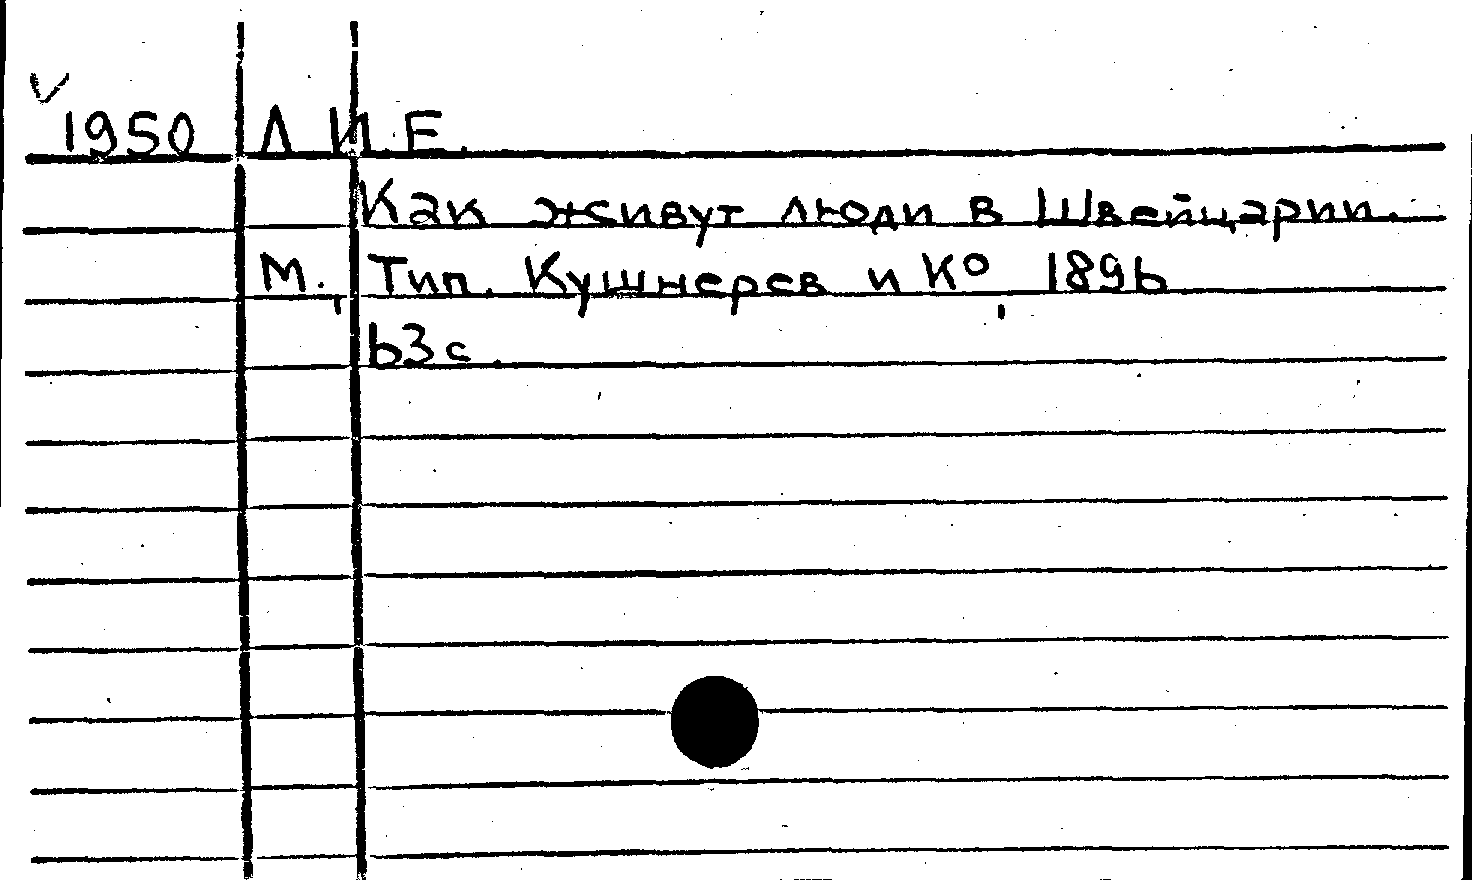 1950 Л И.Е.
Как живут люди в Швейцарии.
М., Тип. Кушнерев и К⁰, 1896
63 с.